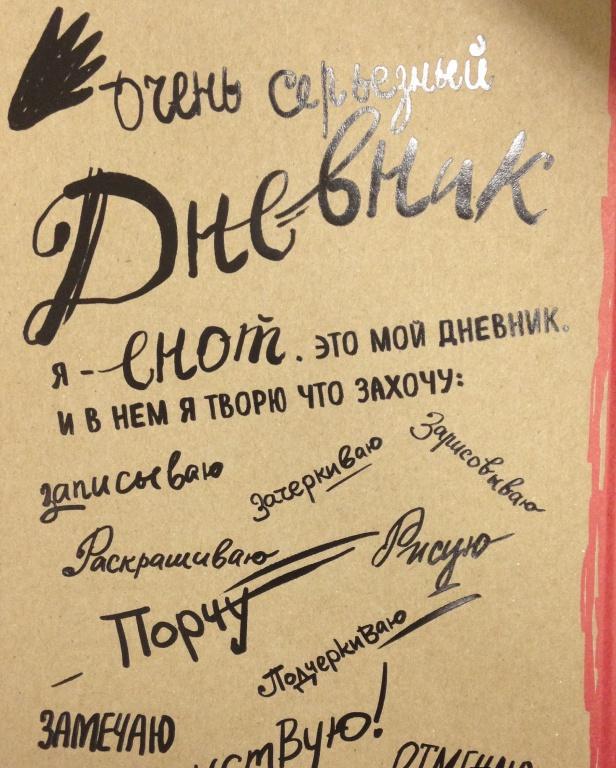 очень серьезный
Дневник
Я - енот. ЭТО МОЙ ДНЕВНИК.
И В НЕМ Я ТВОРЮ ЧТО ЗАХОЧУ:
записываю
Зачеркиваю
Зарисовываю
Раскрашиваю
Рисую
Порчу
Подчеркиваю
ЗАМЕЧАЮ